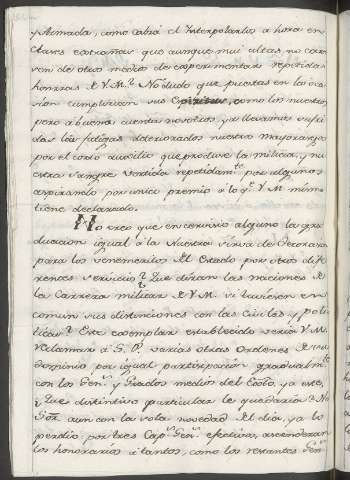 y Armada, como cabrá el Interpolarlos a hora en
Claves estrañas que aunque mui altas, no care
cen de otros medios de esperimentar repetidas
honrras de V.M.? No dudo que puestas en la oca
sion cumplirian sus como los nuestros
pero a buena cuenta nosotros ya llevamos sufri
das las fatigas deteriorados nuestros mayorazgos
por el corto auxilio que produce la milicia, y nu
estra sangre vertida repetidamte. por algunos
aspirando por unico premio á lo q.e V.M. mismo
tiene declarado.
No creo que en servicio alguno la gra
duacion igual á la Nuestra sirva de Decorarse
para los venemeritos del Estado por otros dife
rentes servicios? Que dirian las naciones si
la Carrera militar de V.M. viniese en
comun sus distinciones con las Civiles y poli
ticas? Este exemplar establecido seria V.M.
reclamar á S.P. varias otras Ordenes de su
dominio por igual participacion gradualm.te
con los Gen.s y Grados medios del Exto. ya este,
¿Que distintivo particular le quedaria? No
Sor. aun con la sola novedad del dia, ya lo
perdio por tres Capn. Gens. efectivos, ascenderan
los honorarios á tantos, como los restantes Gens.